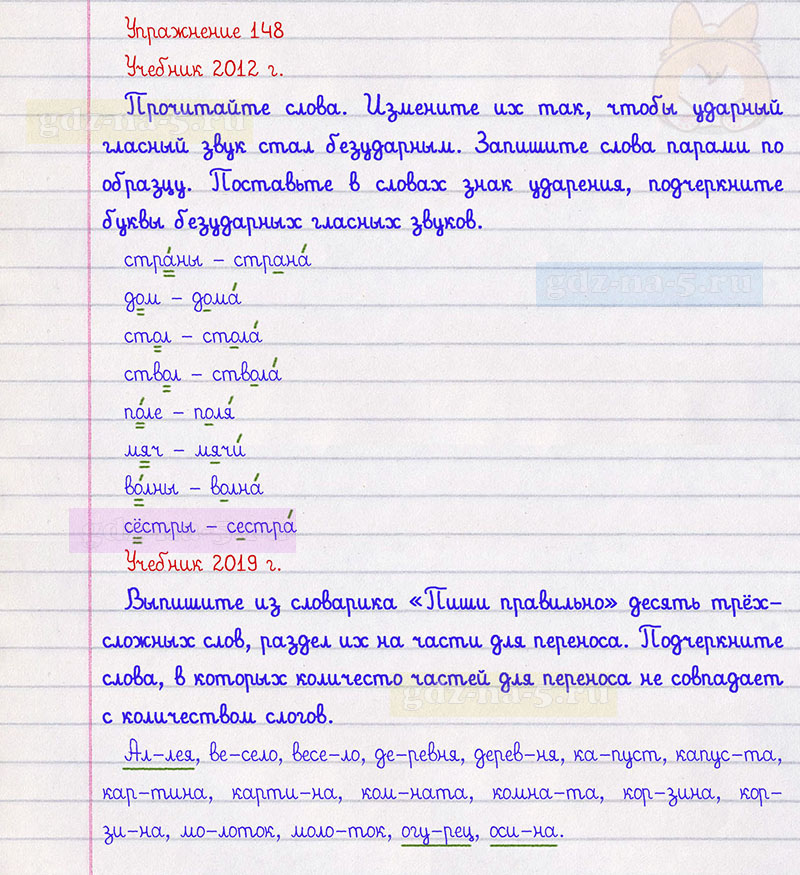 Упражнение 148
Учебник 2012 г.
gdz-na-5.ru
Прочитайте слова. Измените их так, чтобы ударный
гласный звук стал безударным. Запишите слова парами по
образцу. Поставьте в словах знак ударения, подчеркните
буквы безударных гласных звуков.
стра́ны – страна́
gdz-na-5.ru
дом – дома́
стол – стола́
ствол – ствола́
по́ле – поля́
мяч – мячи́
во́лны – волна́
сёстры – сестра́
gdz-na-5.ru
Учебник 2019 г.
Выпишите из словарика «Пиши правильно» десять трёх–
сложных слов, раздел их на части для переноса. Подчеркните
слова, в которых количесто частей для переноса не совпадает
gdz-na-5.ru
с количеством слогов.
Ал–лея, ве–село, весе–ло, де–ревня, дерев–ня, ка–пуст, капус–та,
кар–тина, карти–на, ком–ната, комна–та, кор–зина, кор–
зи–на, мо–лоток, моло–ток, огу–рец, оси–на.